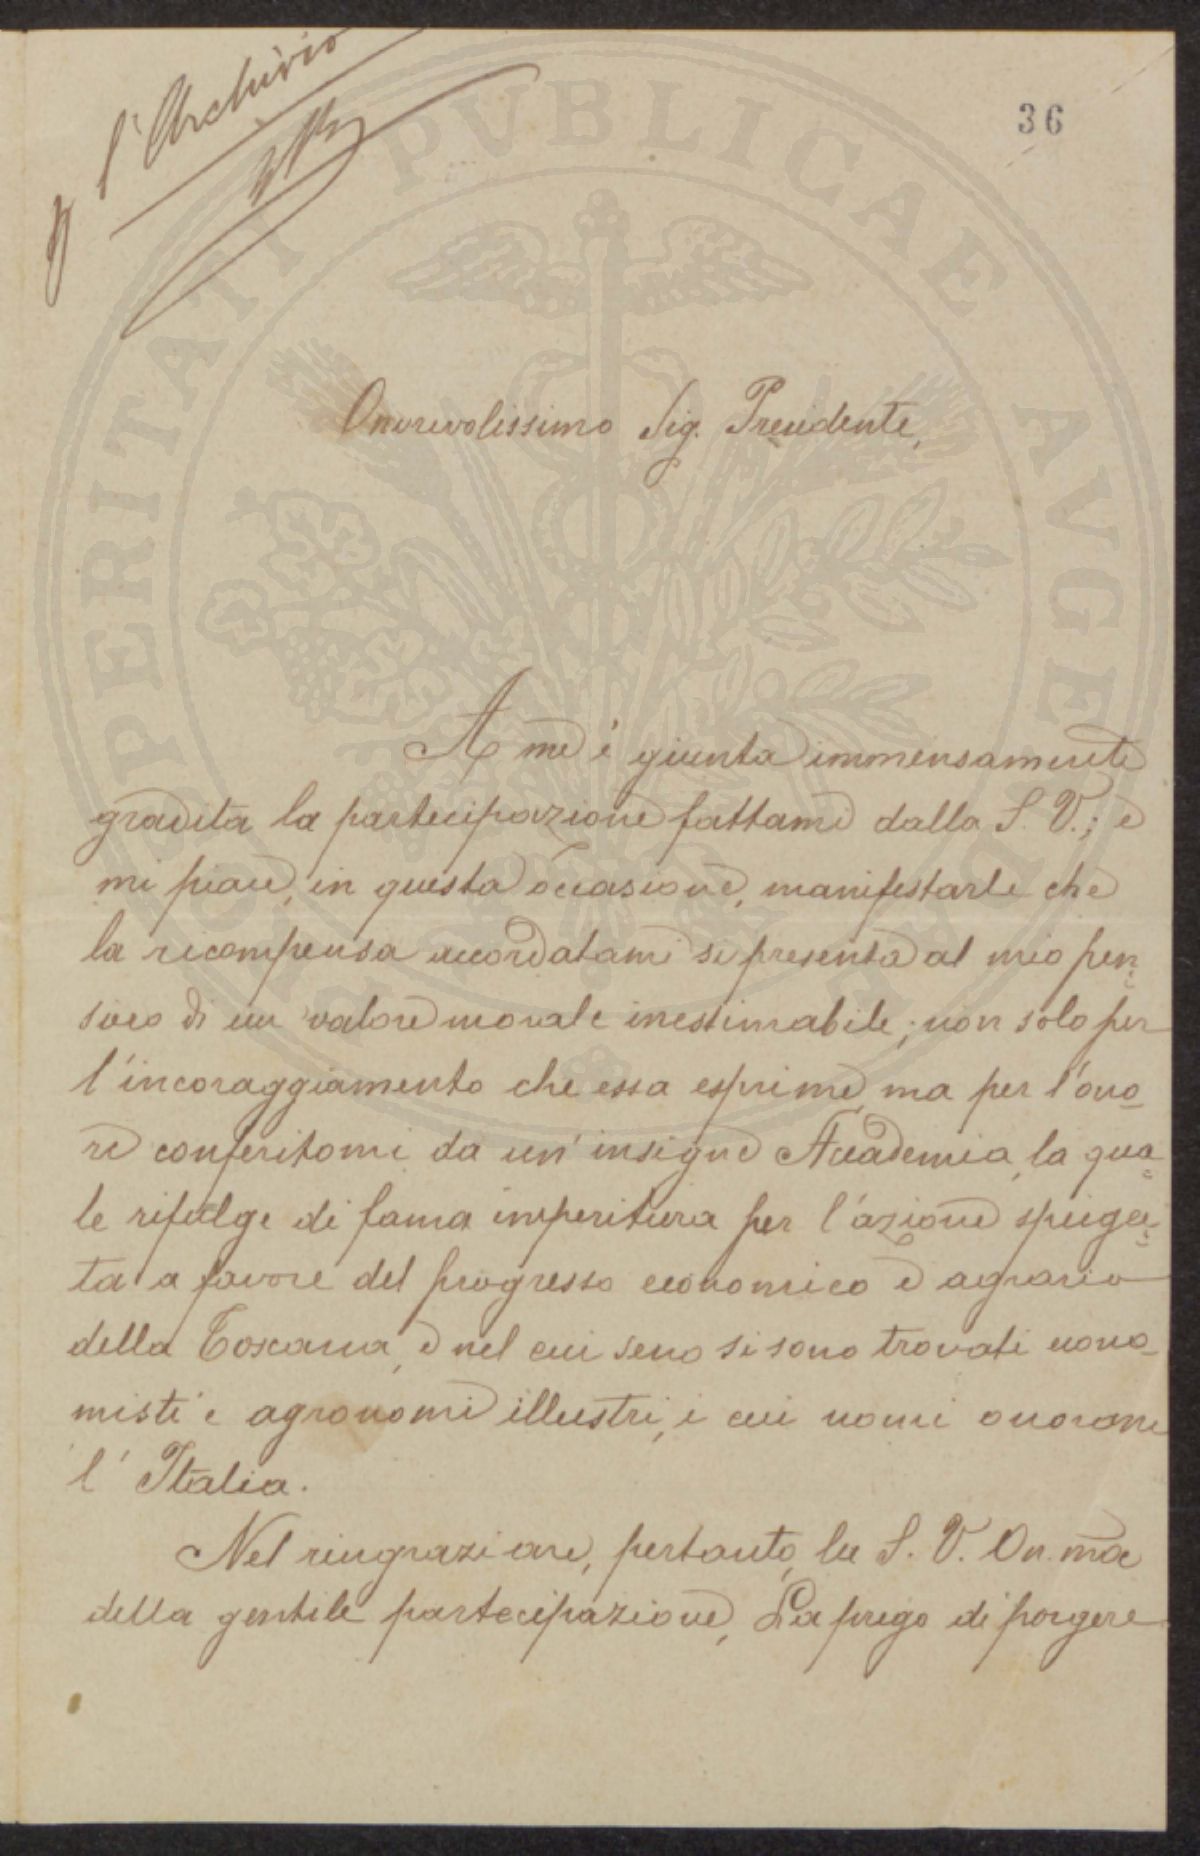 l'Archivio
36
PROSPERITATI PVBLICAE AVGENDAE
Onorevolissimo Sig. Presidente,
A me è giunta immensamente
gradita la partecipazione fattami dalla S. V.; e
mi piace, in questa occasione, manifestarle che
la ricompensa accordatami si presenta al mio pen=
siero di un valore morale inestimabile; non solo per
l'incoraggiamento che essa esprime, ma per l'ono-
re conferitomi da un'insigne Accademia, la qua=
le rifulge di fama imperitura per l'azione spiega=
ta a favore del progresso economico e agrario
della Toscana, e nel cui seno si sono trovati econo-
misti e agronomi illustri, i cui nomi onorano
l'Italia.
Nel ringraziare, pertanto, la S. V. On.ma
della gentile partecipazione, La prego di porgere